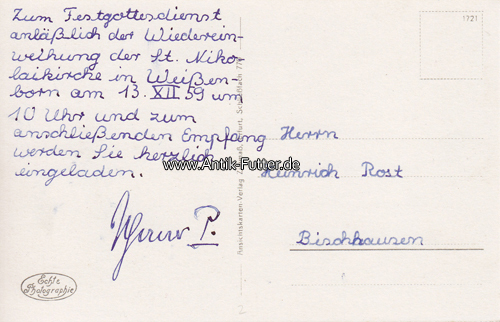 Zum Festgottesdienst
anläßlich der Wiederein-
weihung der St. Niko-
laikirche in Weißen-
born am 13. XII 59 um
10 Uhr und zum
anschließenden Empfang
werden Sie herzlich
eingeladen.
P.
Echte
Photographie
Ansichtskarten-Verlag
1721
Herrn
Heinrich Rost
Bischhausen
www.Antik-Futter.de